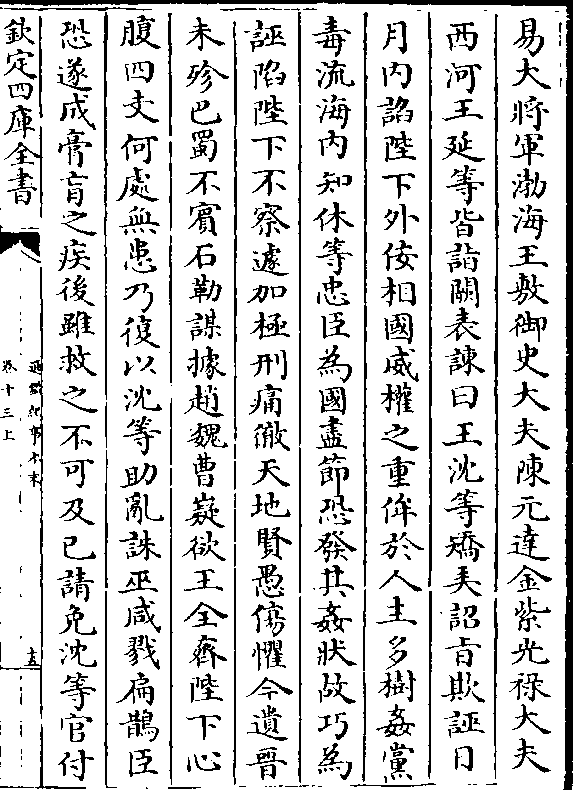 易大將軍渤海王敷御史大夫陳元達金紫光祿大夫
西河王延等皆詣闕表諫曰王沈等矯弄詔旨欺誣日
月内諂陛下外佞相國威權之重侔於人主多樹姦黨
毒流海内知休等忠臣為國盡節恐發其姦狀故巧為
誣陷陛下不察遽加極刑痛徹天地賢愚傷懼今遺晉
未殄巴蜀不賓石勒謀據趙魏曹嶷欲王全齊陛下心
腹四支何處無患乃復以沈等助亂誅巫咸戮扁鵲臣
恐遂成膏肓之疾後雖救之不可及已請免沈等官付
欽定四庫全書
通鑑紀事本末
卷十三上
十五